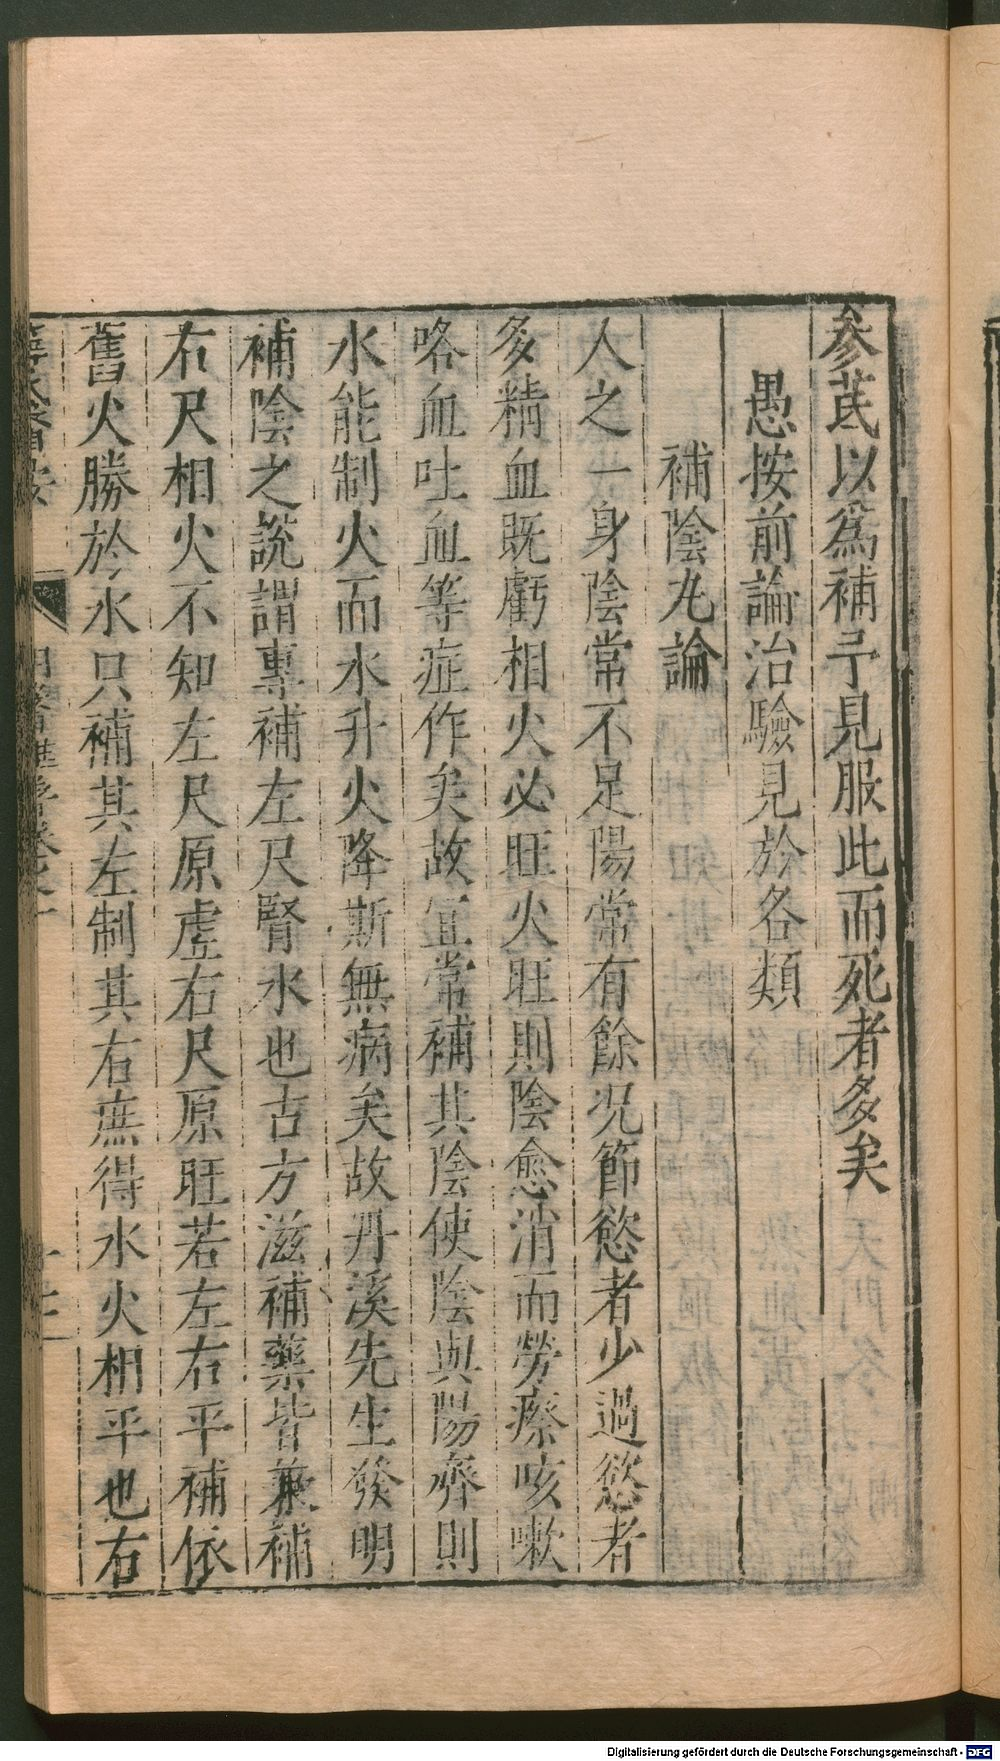 參芪以爲補予見服此而死者多矣
愚按前論治驗見於各類
補陰丸論
人之一身陰常不足陽常有餘况節慾者少過慾者
多精血既虧相火必旺火旺則陰愈消而勞瘵咳嗽
咯血吐血等症作矣故宜常補其陰使陰與陽齊則
水能制火而水升火降斯無病矣故丹溪先生發明
補陰之說謂專補左尺腎水也古方滋補藥皆兼補
右尺相火不知左尺原虛右尺原旺若左右平補依
舊火勝於水只補其左制其右庶得水火相平也右
Digitalisierung gefördert durch die Deutsche Forschungsgemeinschaft - DFG